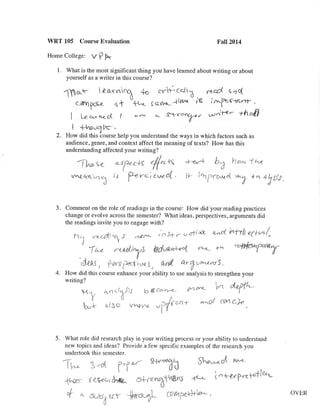 WRT 105 Course Evaluation Fall 2014
Home College: VPA
1. What is the most significant thing you have learned about writing or about
yourself as a writer in this course?
That learning to critically read and
compose at the same time is important.
I learned I am a stronger writer than
I thought.
2. How did this course help you understand the ways in which factors such as
audience, genre, and context affect the meaning of texts? How has this
understanding affected your writing?
Those aspects affects text by how the
meaning is perceived. It improved my analysis.
3. Comment on the role of readings in the course: How did your reading practices
change or evolve across the semester? What ideas, perspectives, arguments did
the readings invite you to engage with?
My readings were and intellectual.
The readings me to
ideas, perspectives, and arguments.
4. How did this course enhance your ability to use analysis to strengthen your
writing?
My analysis became more in depth,
but also more upfront and concise.
5. What role did research play in your writing process or your ability to understand
new topics and ideas? Provide a few specific examples of the research you
undertook this semester.
The 3rd paper strongly showed me
research strengthens the interpretation
of a subject through
OVER